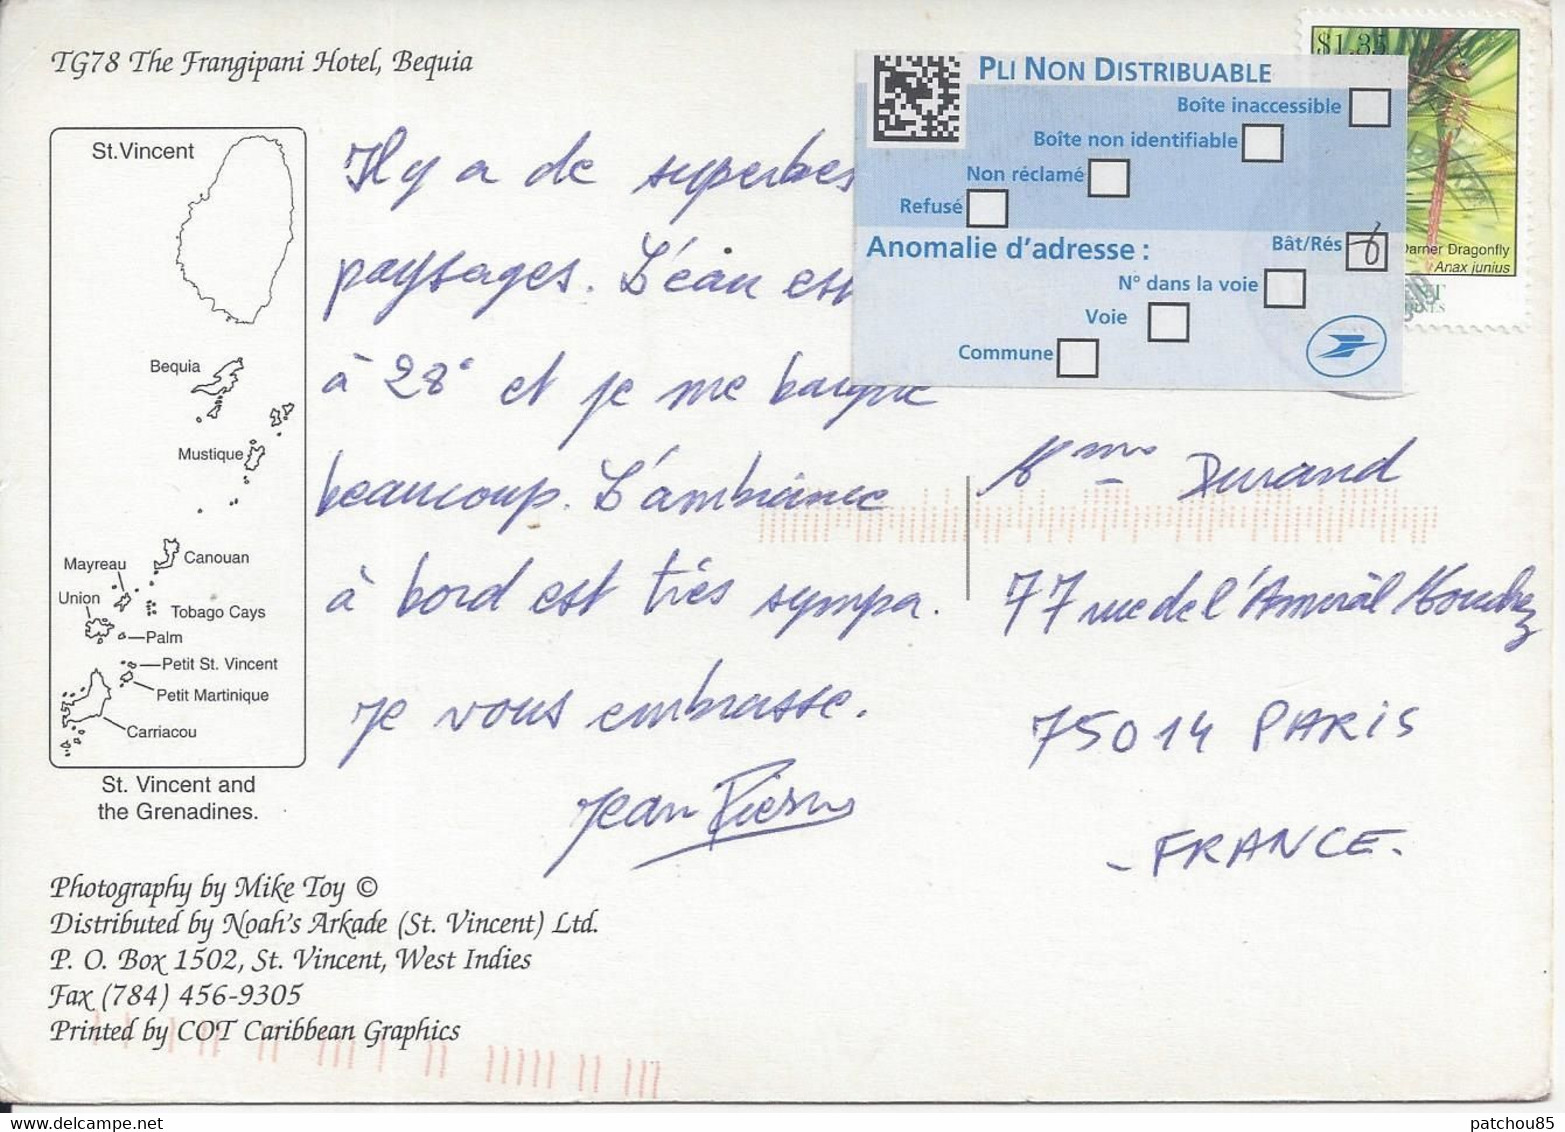 TG78 The Frangipani Hotel, Bequia
St. Vincent
Bequia
Mustique
Canouan
Mayreau
Union
Tobago Cays
Palm
Petit St. Vincent
Petit Martinique
Carriacou
St. Vincent and
the Grenadines.
Il y a de superbes
paysages. L'eau est
à 28° et je me baigne
beaucoup. L'ambiance
à bord est très sympa.
Je vous embrasse.
Jean Pierre
Photography by Mike Toy ©
Distributed by Noah's Arkade (St. Vincent) Ltd.
P. O. Box 1502, St. Vincent, West Indies
Fax (784) 456-9305
Printed by COT Caribbean Graphics
PLI NON DISTRIBUABLE
Boîte inaccessible
Boîte non identifiable
Non réclamé
Refusé
Anomalie d'adresse :
Bât/Rés
N° dans la voie
Voie
Commune
$1.35
Darner Dragonfly
Anax junius
Mme Durand
77 rue de l'Amiral Mouchez
75014 PARIS
- FRANCE.
patchou85